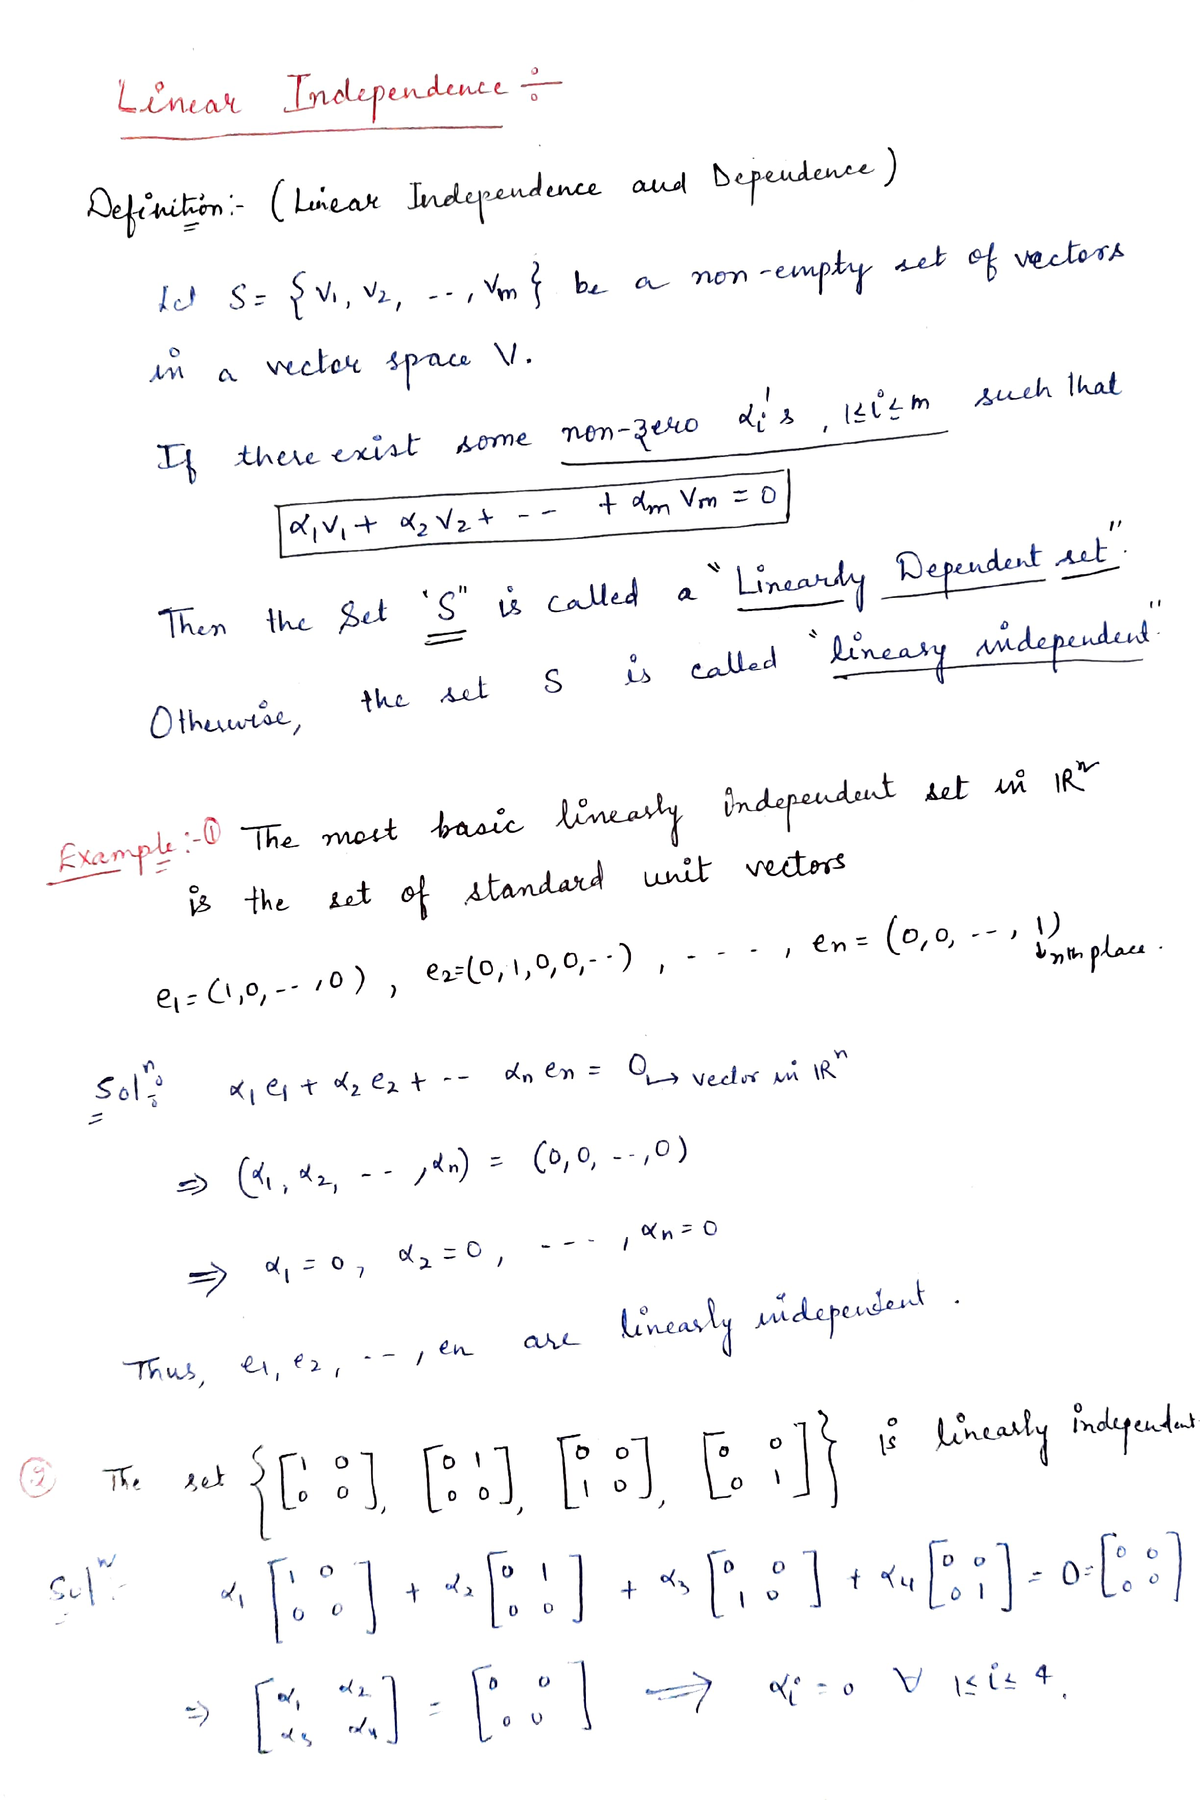 Linear Independence ÷
Definition:- (Linear Independence and Dependence)
Let S = {v₁, v₂, --, vm} be a non-empty set of vectors
in a vector space V.
If there exist some non-zero αᵢ's, 1≤i≤m such that
α₁v₁ + α₂v₂ + -- + αm vm = 0
Then the Set 'S" is called a "Linearly Dependent set".
Otherwise, the set S is called "lineasy independent".
Example:-① The most basic linearly independent set in ℝⁿ
is the set of standard unit vectors
e₁ = (1,0,--,0), e₂=(0,1,0,0,--), - - - -, en = (0,0,--,1)
↓nth place.
Solⁿ÷ α₁e₁ + α₂e₂ + -- αn en = 0 ↦ vector in ℝⁿ
⇒ (α₁, α₂, --, αn) = (0,0,--,0)
⇒ α₁ = 0, α₂ = 0, ---, αn = 0
Thus, e₁, e₂, --, en are linearly independent.
② The set {[1 0; 0 0], [0 1; 0 0], [0 0; 1 0], [0 0; 0 1]} is linearly independent
Solⁿ:- α₁[1 0; 0 0] + α₂[0 1; 0 0] + α₃[0 0; 1 0] + α₄[0 0; 0 1] = 0 = [0 0; 0 0]
⇒ [α₁ α₂; α₃ α₄] = [0 0; 0 0] → αᵢ = 0 ∀ 1≤i≤4.